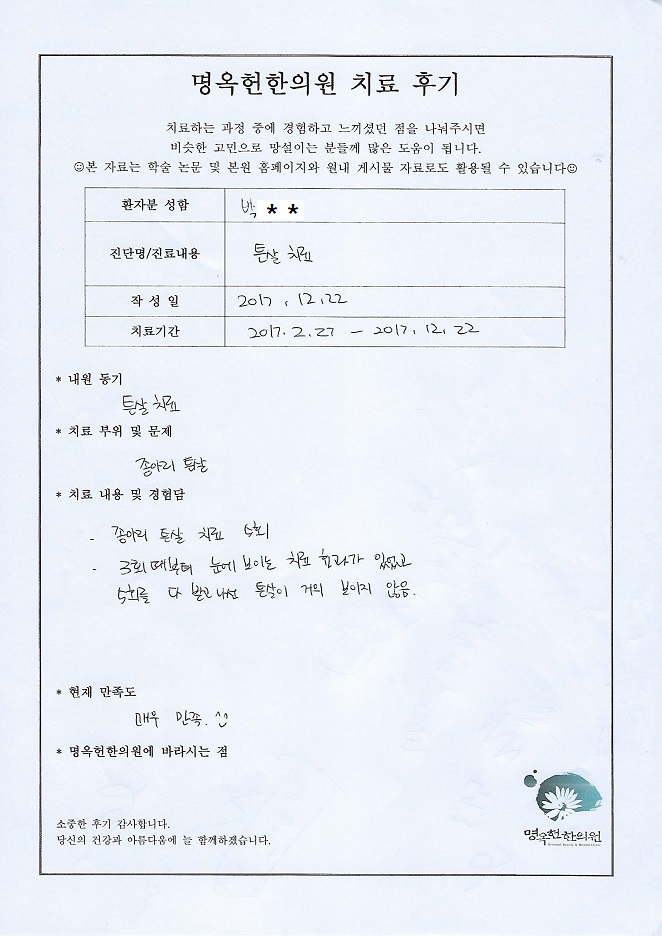 명옥헌한의원 치료 후기
치료하는 과정 중에 경험하고 느끼셨던 점을 나눠주시면
비슷한 고민으로 망설이는 분들께 많은 도움이 됩니다.
☺본 자료는 학술 논문 및 본원 홈페이지와 원내 게시물 자료로도 활용될 수 있습니다☺
환자분 성함 박 * *
진단명/진료내용 튼살 치료
작 성 일 2017. 12. 22
치료기간 2017. 2. 27 - 2017. 12. 22
* 내원 동기
튼살 치료
* 치료 부위 및 문제
종아리 튼살
* 치료 내용 및 경험담
- 종아리 튼살 치료 5회
- 3회때부터 눈에 보이는 치료 효과가 있었고
5회를 다 받고나선 튼살이 거의 보이지 않음.
* 현재 만족도
매우 만족. ^^
* 명옥헌한의원에 바라시는 점
소중한 후기 감사합니다.
당신의 건강과 아름다움에 늘 함께하겠습니다.
명옥헌한의원